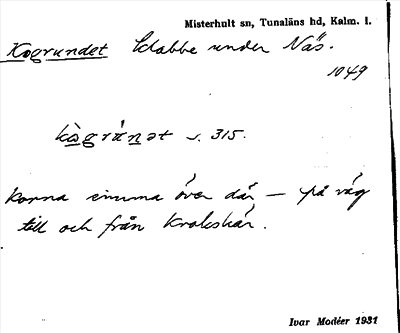 Misterhult sn, Tunaläns hd, Kalm. l.
Kogrundet klabbe under Näs.
1049
kògrúnət s. 315.
korna simma över där, — på väg
till och från Krokskär.
Ivar Modéer 1931